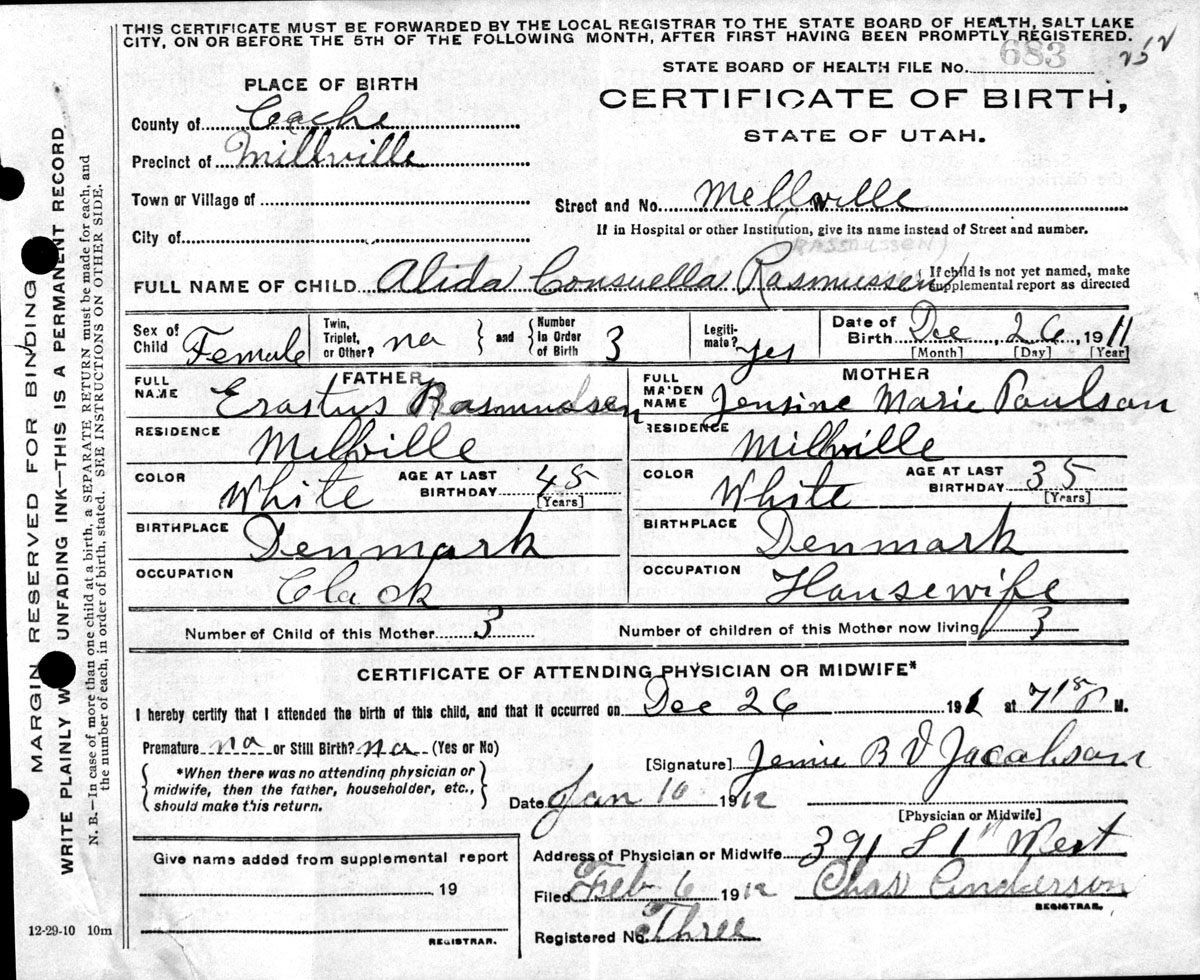 THIS CERTIFICATE MUST BE FORWARDED BY THE LOCAL REGISTRAR TO THE STATE BOARD OF HEALTH, SALT LAKE
CITY, ON OR BEFORE THE 5TH OF THE FOLLOWING MONTH, AFTER FIRST HAVING BEEN PROMPTLY REGISTERED.
STATE BOARD OF HEALTH FILE No. 683
PLACE OF BIRTH
CERTIFICATE OF BIRTH,
STATE OF UTAH.
County of Cache
Precinct of Millville
Town or Village of
Street and No. Mellville
City of
If in Hospital or other Institution, give its name instead of Street and number.
(RASMUSSEN)
FULL NAME OF CHILD Alida Consuella Rasmussen
If child is not yet named, make
supplemental report as directed
Sex of Child Female
Twin, Triplet, or Other? na
and
Number in Order of Birth 3
Legiti-mate? yes
Date of Birth Dec 26, 1911
[Month] [Day] [Year]
FATHER
FULL NAME Erastus Rasmussen
RESIDENCE Millville
COLOR White
AGE AT LAST BIRTHDAY 45 [Years]
BIRTHPLACE Denmark
OCCUPATION Clack
MOTHER
FULL MAIDEN NAME Jensine Marie Poulson
RESIDENCE Millville
COLOR White
AGE AT LAST BIRTHDAY 35 [Years]
BIRTHPLACE Denmark
OCCUPATION Hansewife
Number of Child of this Mother 3
Number of children of this Mother now living 3
CERTIFICATE OF ATTENDING PHYSICIAN OR MIDWIFE*
I hereby certify that I attended the birth of this child, and that it occurred on Dec 26 191 at M.
Premature na or Still Birth? na (Yes or No)
*When there was no attending physician or
midwife, then the father, householder, etc.,
should make this return.
[Signature] Jennie B V Jacabson
Date Jan 10 1912
[Physician or Midwife]
Give name added from supplemental report
19
REGISTRAR.
Address of Physician or Midwife 391 S 1st West
Filed Feb 6 1912 Chas Anderson
REGISTRAR.
Registered No. Three
12-29-10 10m
MARGIN RESERVED FOR BINDING
WRITE PLAINLY W UNFADING INK—THIS IS A PERMANENT RECORD
N. B.—In case of more than one child at a birth, a SEPARATE RETURN must be made for each, and
the number of each, in order of birth, stated. SEE INSTRUCTIONS ON OTHER SIDE.